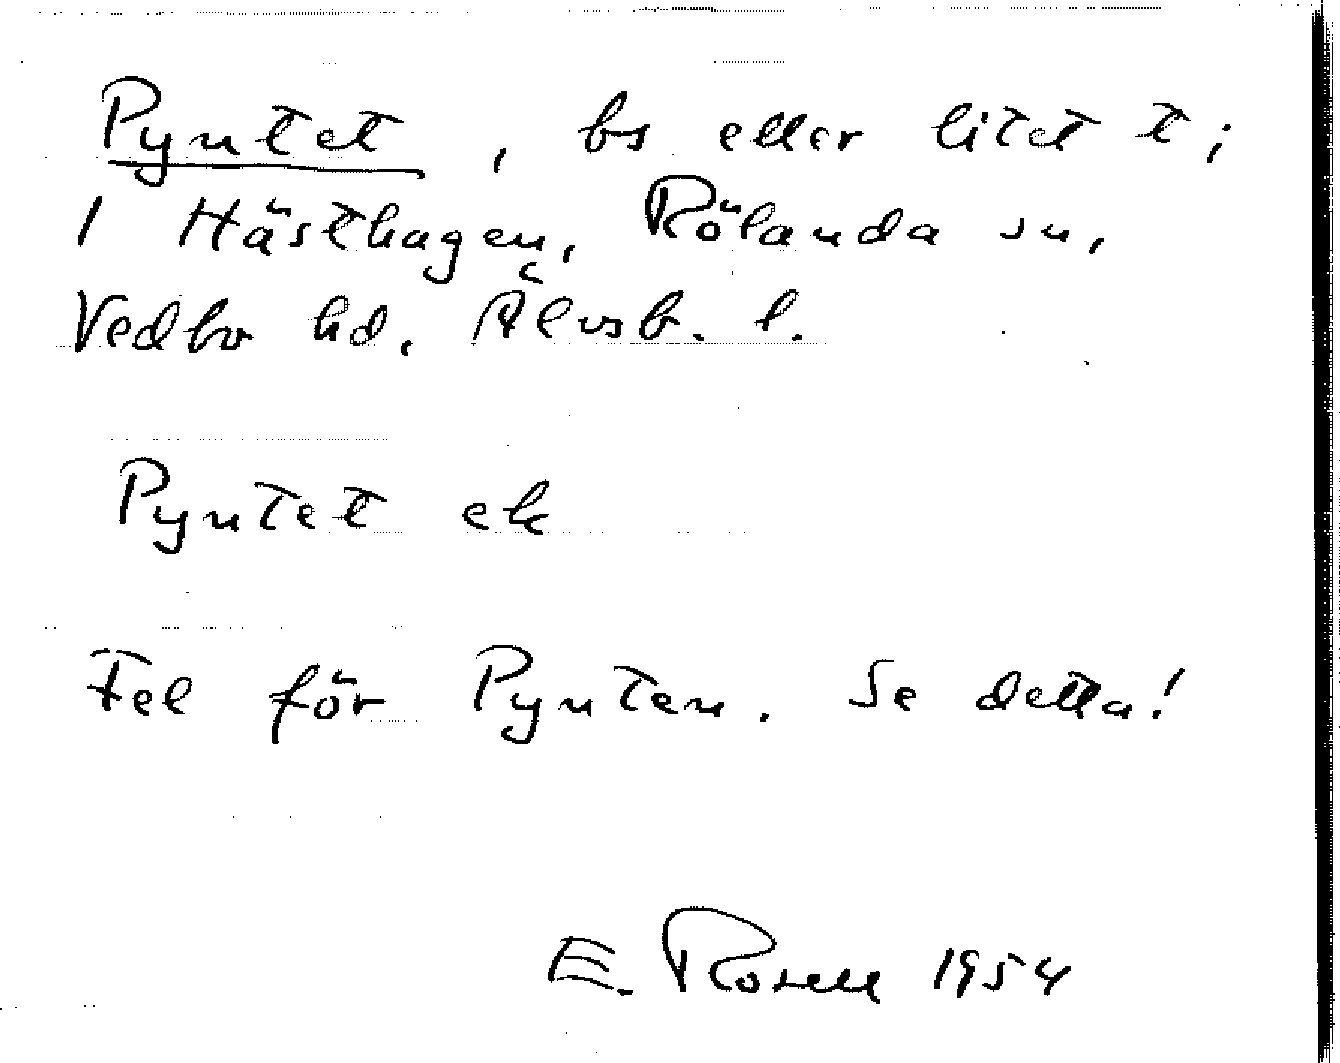 Pyntet, bs eller litet t;
1 Hästhagen, Rölanda sn,
Vedbo hd. Älvsb. l.
Pyntet ek
Fel för Pynten. Se detta!
E. Rosell 1954